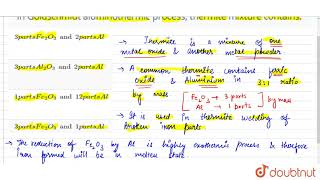 In Goldschmidt aluminothermic process, thermite mixture contains:
3partsFe2O3 and 2partsAl
3partsAl2O3 and 2partsAl
3partsFe2O3 and 4partsAl
3partsFe2O3 and 1partsAl
→ Thermite is a mixture of one metal oxide & another metal powder
→ A common thermite contains ferric oxide & Aluminium in 3:1 ratio by mass
[Fe2O3 → 3 parts
Al → 1 parts] by mass
→ It is used in thermite welding of broken iron parts
→ The reduction of Fe2O3 by Al is highly exothermic process & therefore
iron formed will be in molten state
doubtnut